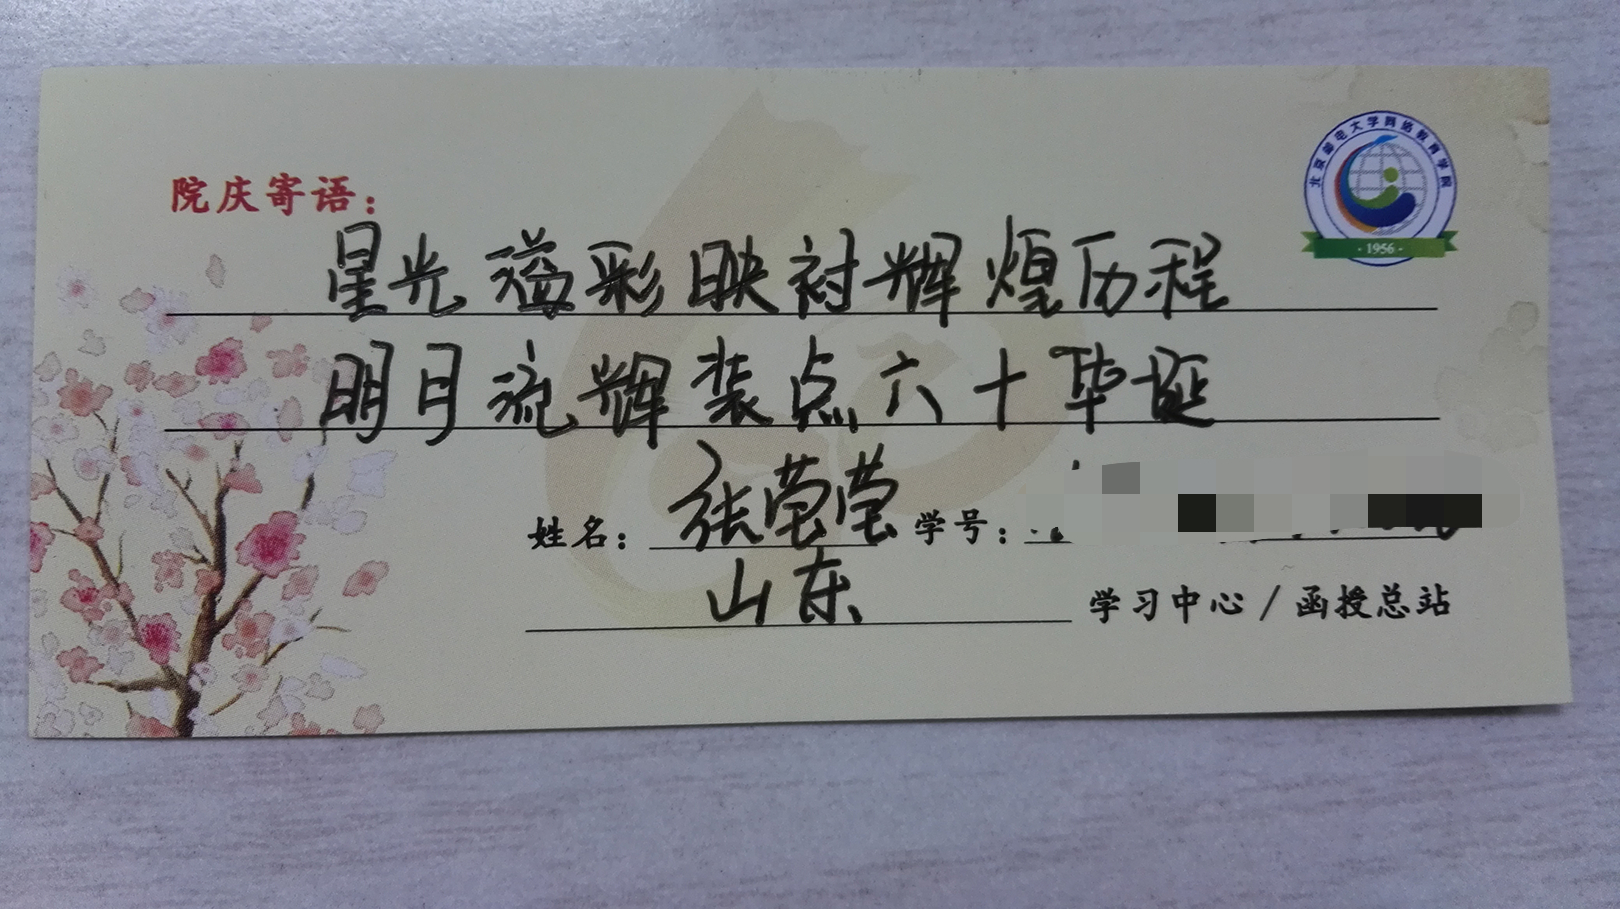 北京邮电大学网络教育学院
·1956·
院庆寄语：
星光溢彩映衬辉煌历程
明月流辉装点六十华诞
姓名：张莹莹 学号：
山东 学习中心/函授总站